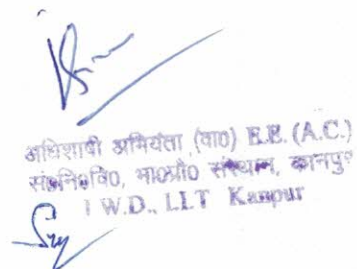 अधिशाषी अभियंता (वा०) E.E. (A.C.)
सं०नि०वि०, भा०प्रौ० संस्थान, कानपुर
I W.D., I.I.T Kanpur